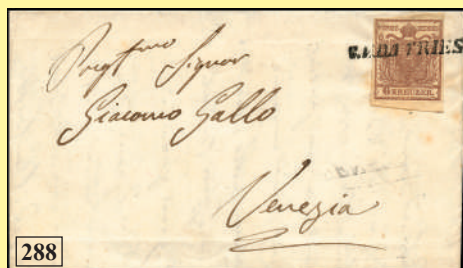 Pregt.mo Signor
Giacomo Gallo
Venezia
DA TRIES
6 KREUZER.
288